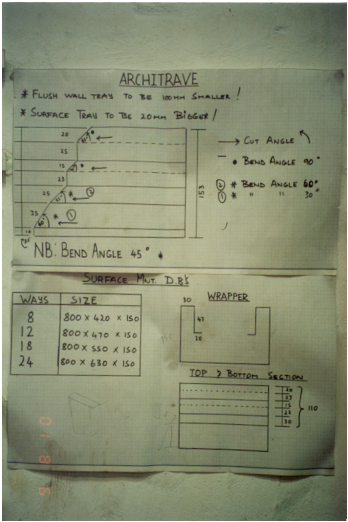 ARCHITRAVE
* FLUSH WALL TRAY TO BE 100MM SMALLER!
* SURFACE TRAY TO BE 20MM BIGGER!
20
25
15
23
25
35
10
153
→ CUT ANGLE
* BEND ANGLE 90°
② * BEND ANGLE 60°
① * " " 30°
NB: BEND ANGLE 45° *
SURFACE MNT D.B's
WAYS SIZE
8 800 x 420 x 150
12 800 x 470 x 150
18 800 x 550 x 150
24 800 x 630 x 150
WRAPPER
50
TOP & BOTTOM SECTION
20
23
15
23
50
110